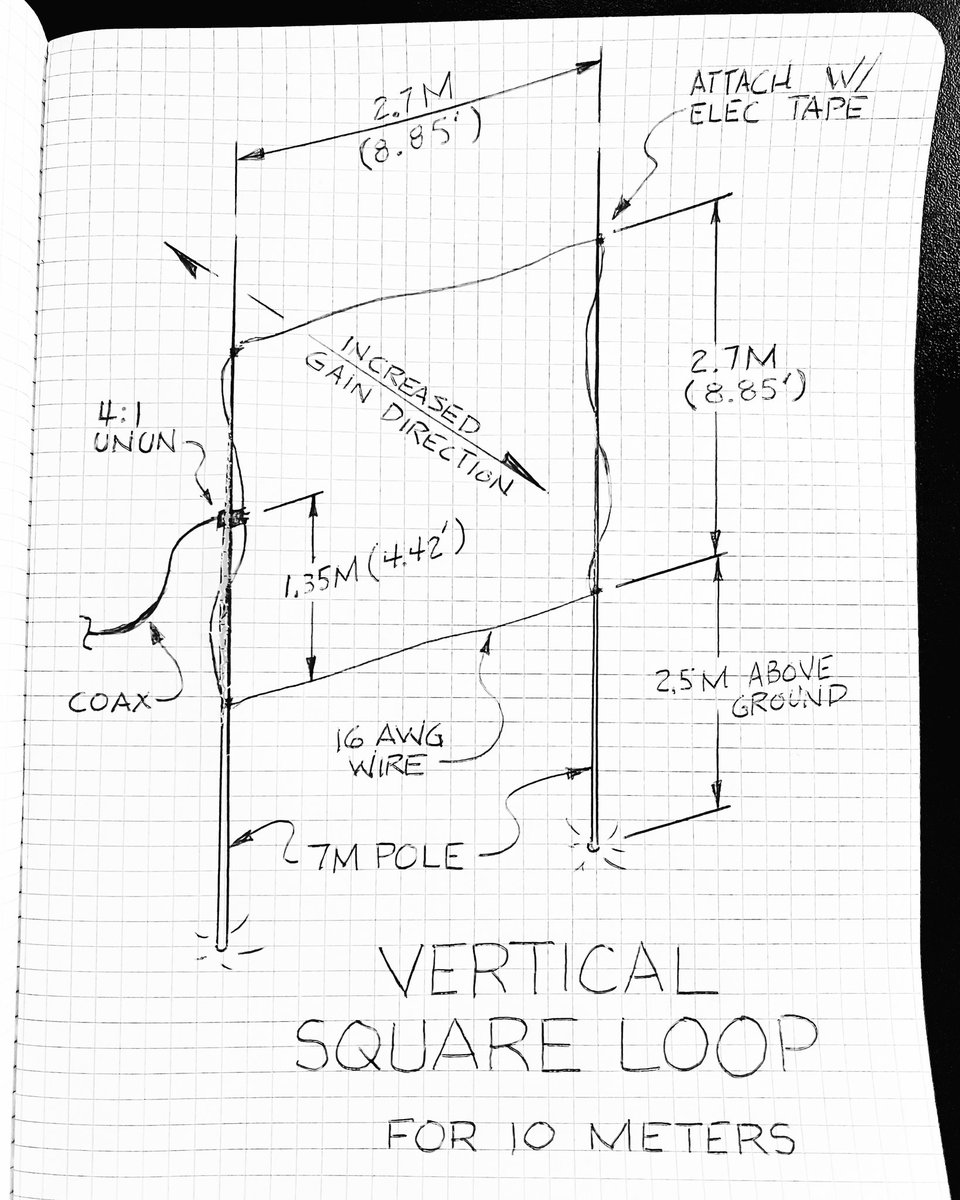 2.7M
(8.85')
ATTACH W/
ELEC TAPE
INCREASED
GAIN DIRECTION
2.7M
(8.85')
4:1
UNUN
1.35M (4.42')
COAX
2.5M ABOVE
GROUND
16 AWG
WIRE
7M POLE
VERTICAL
SQUARE LOOP
FOR 10 METERS